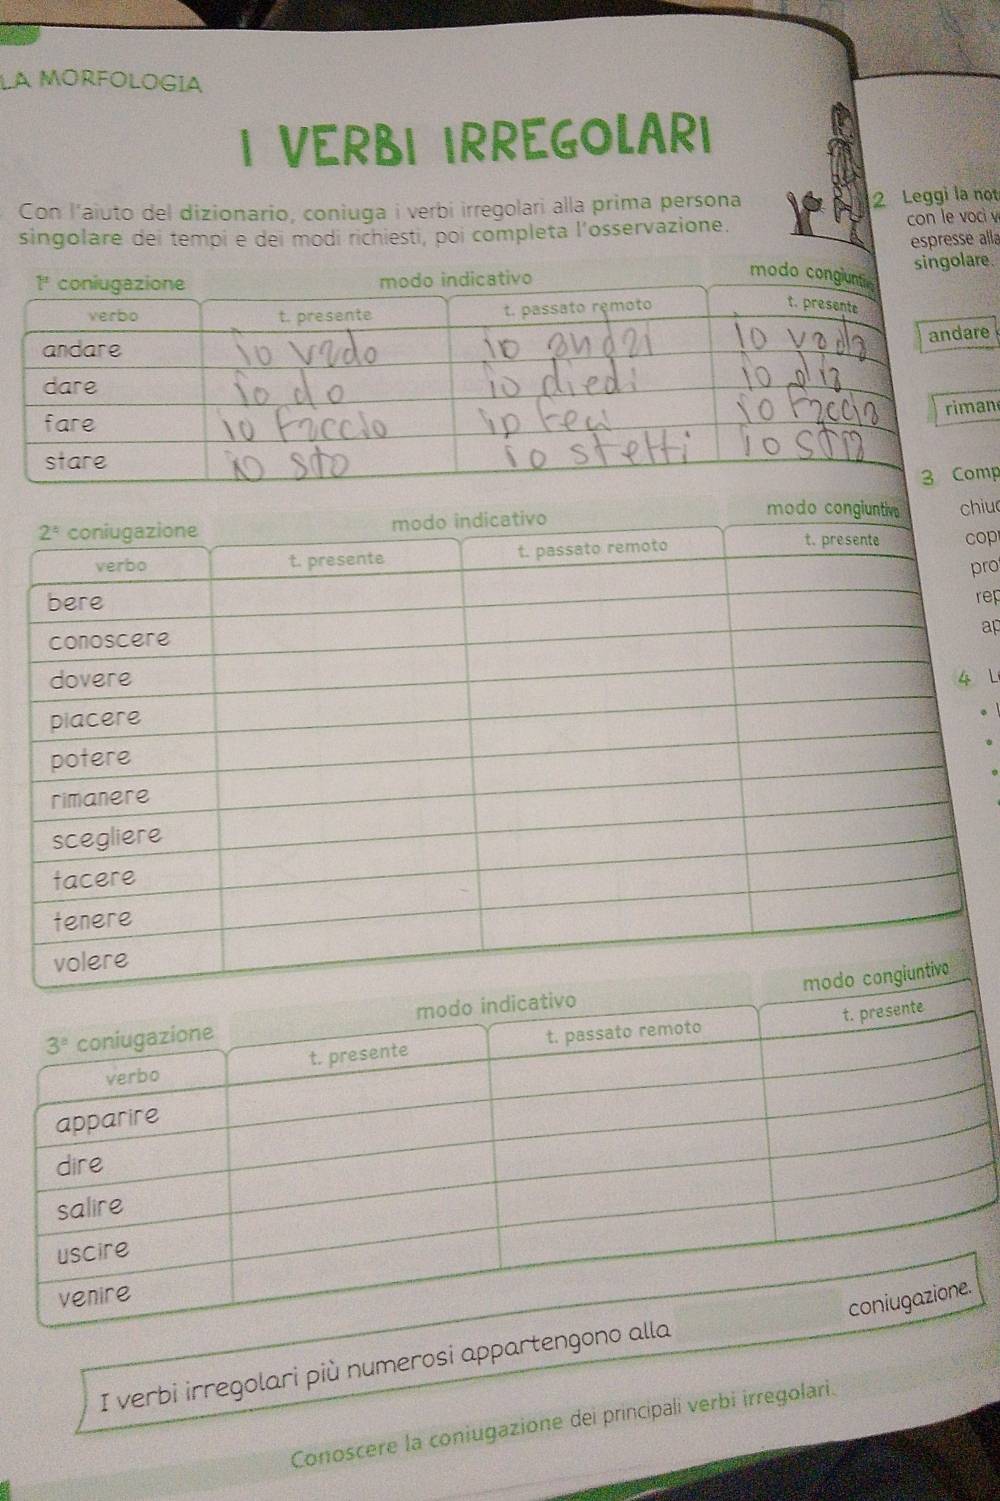 LA MORFOLOGIA
I VERBI IRREGOLARI
Con l'aiuto del dizionario, coniuga i verbi irregolari alla prima persona
singolare dei tempi e dei modi richiesti, poi completa l'osservazione.
1ª coniugazione modo indicativo modo congiuntivo
verbo t. presente t. passato remoto t. presente
andare io vado io andai io vada
dare io do io diedi io dia
fare io faccio io feci io faccia
stare io sto io stetti io stia
2ª coniugazione modo indicativo modo congiuntivo
verbo t. presente t. passato remoto t. presente
bere
conoscere
dovere
piacere
potere
rimanere
scegliere
tacere
tenere
volere
3ª coniugazione modo indicativo modo congiuntivo
verbo t. presente t. passato remoto t. presente
apparire
dire
salire
uscire
venire
I verbi irregolari più numerosi appartengono alla coniugazione.
Conoscere la coniugazione dei principali verbi irregolari.
2 Leggi la not
con le voci v
espresse alla
singolare.
andare
riman
3 Comp
chiu
cop
pro
rep
ap
4 L